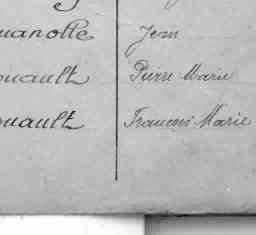 uanolle Jean
ouault Pierre Marie
ouault François Marie